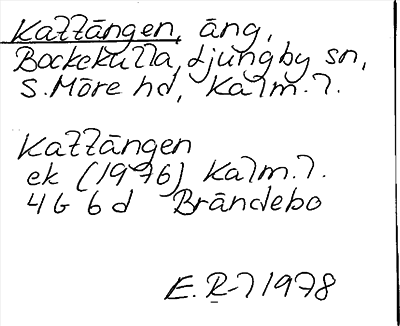 Kattängen, äng,
Bockekulla, Ljungby sn,
S. Möre hd, Kalm. l.
Kattängen
ek (1976) Kalm. l.
4G 6d Brändebo
E. R-l 1978